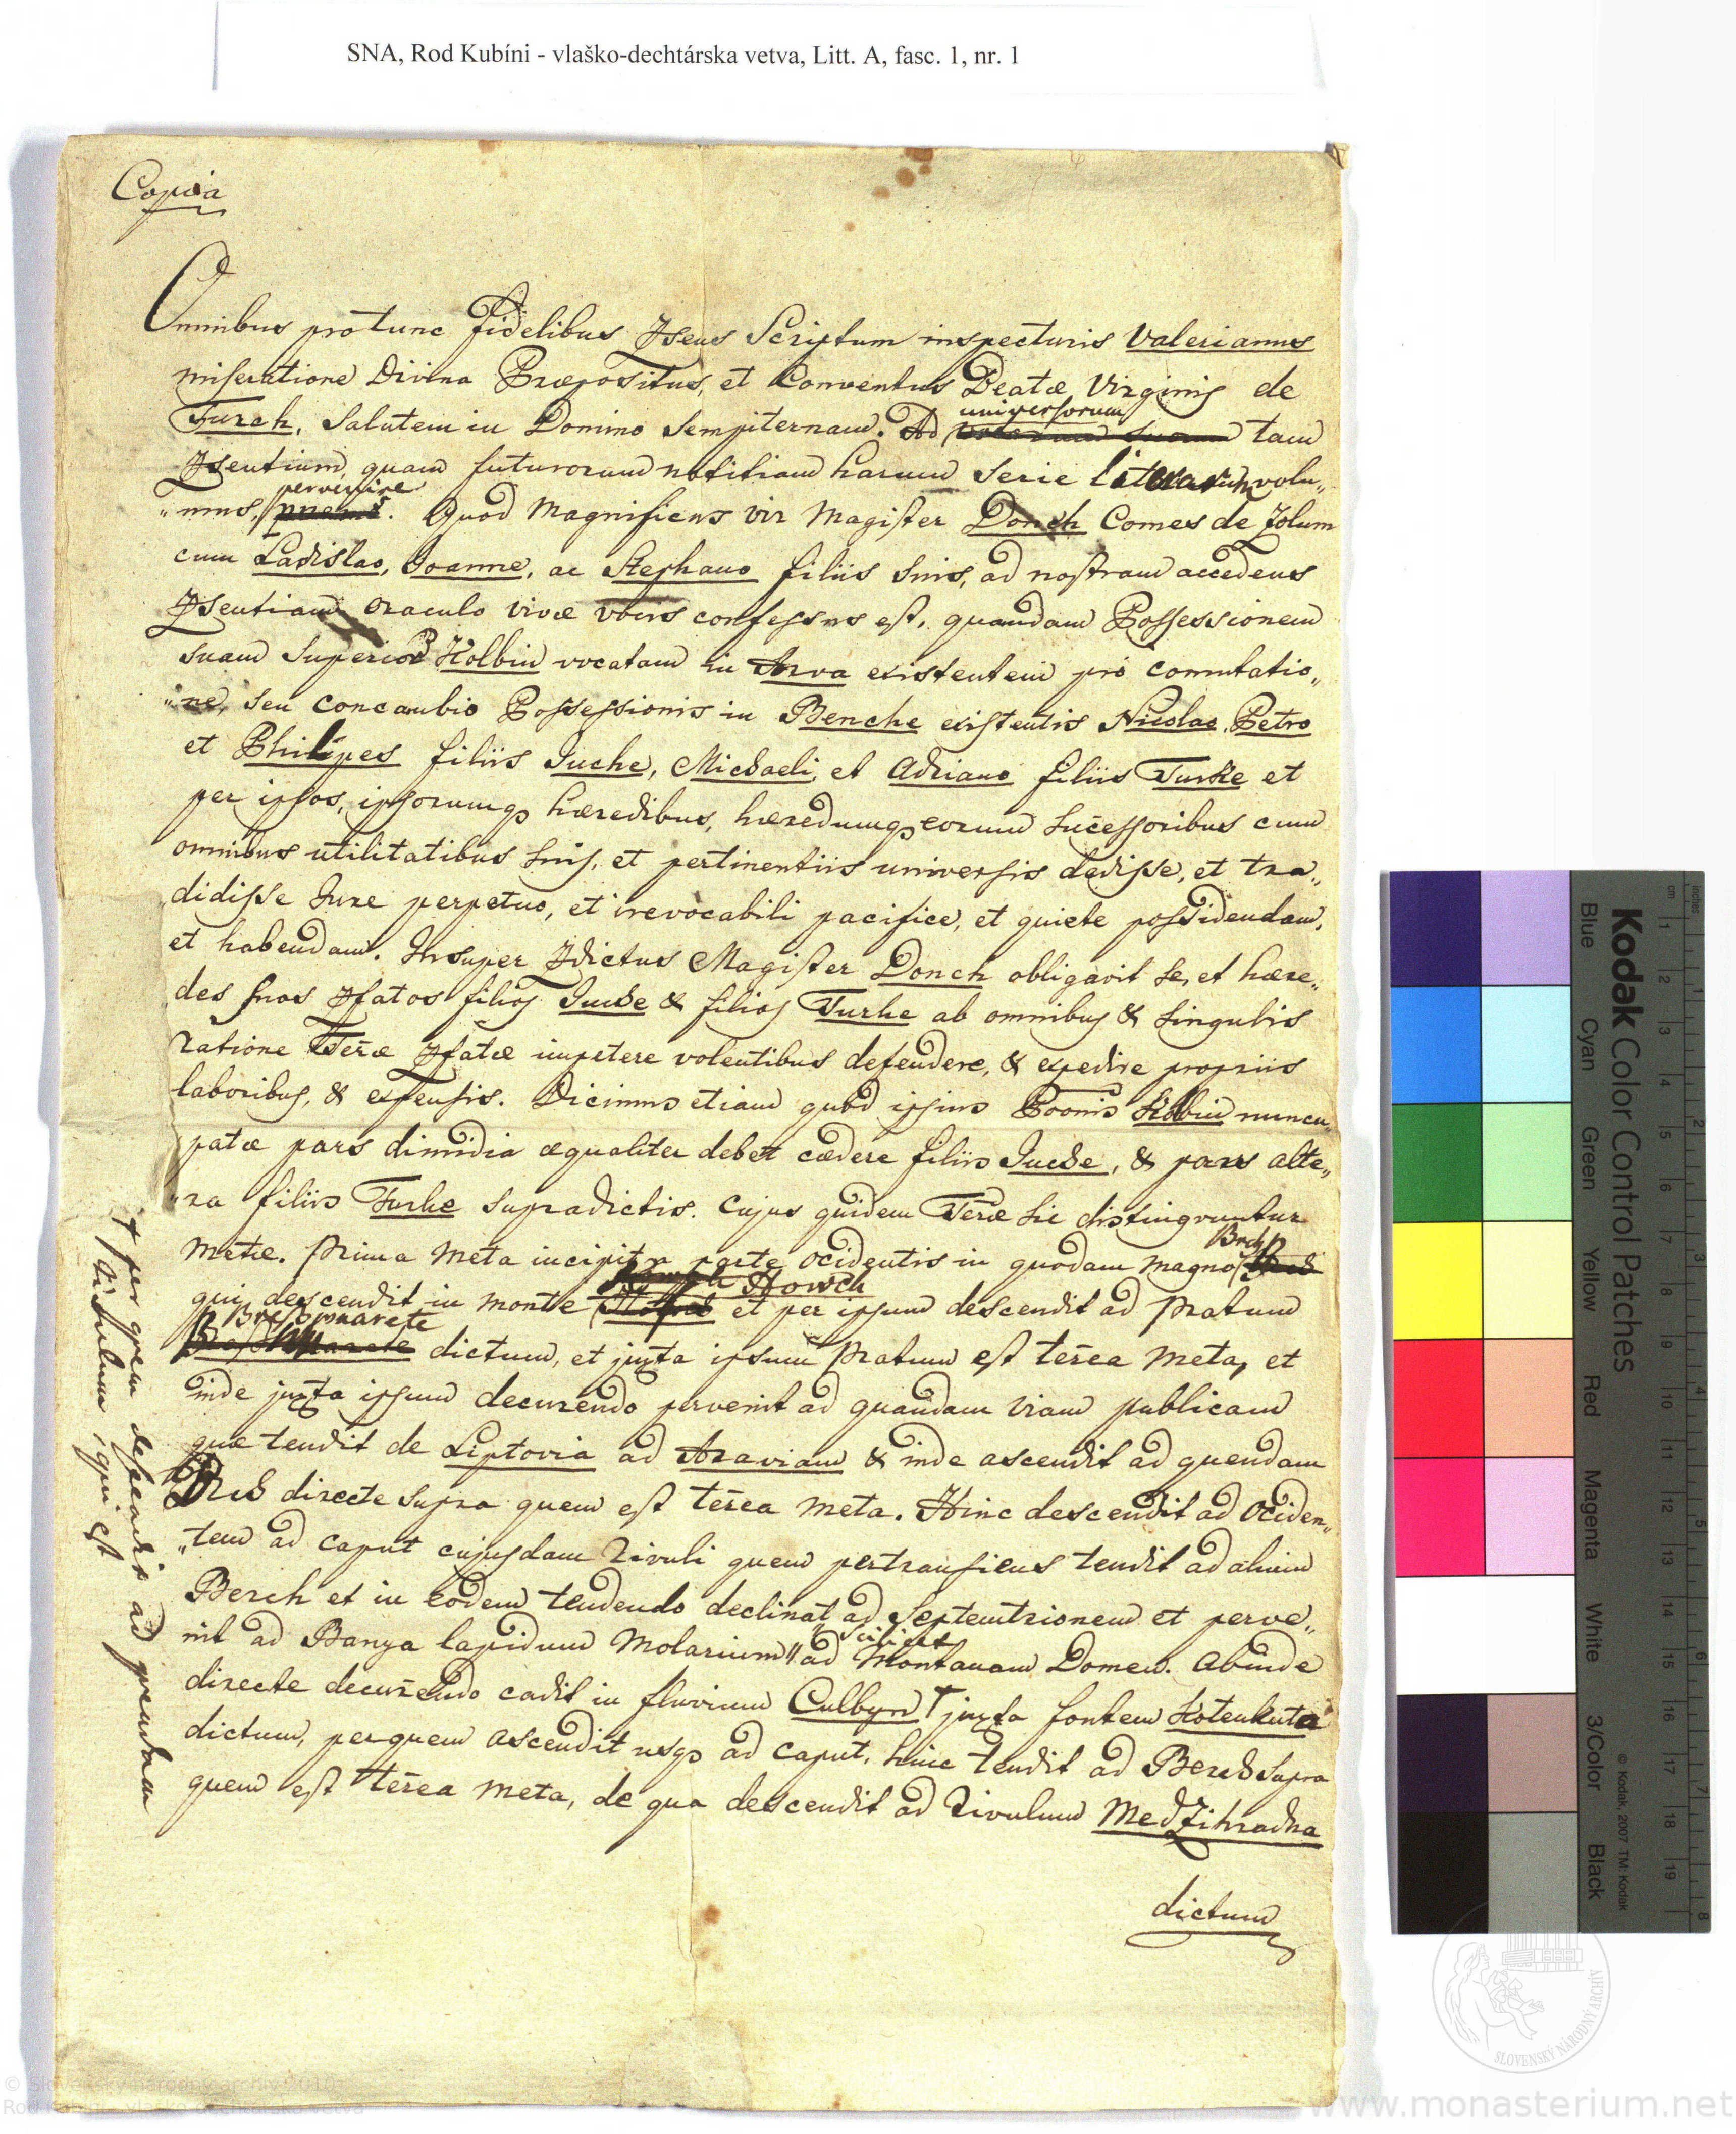 SNA, Rod Kubíni - vlaško-dechtárska vetva, Litt. A, fasc. 1, nr. 1
Copia
Omnibus pro tunc fidelibus psens Scriptum inspecturis Valerianus
miseratione Divina Præpositus, et Conventus Beatæ Virginis de
Turch, Salutem in Domino Sempiternam. Ad universorum tam
psentium, quam futurorum notitiam harum Serie literarum volu„
„mus, pervenire. Quod Magnificus vir Magister Donch Comes de Zolum
cum Ladislao, Joanne, ac Stephano filiis suis, ad nostram accedens
psentiam oraculo vivæ vocis confessus est, quandam Possessionem
suam Superior Kolbin vocatam in Arva existentem pro commutatio„
„ne, seu Concambio Possessionis in Benche existentis Nicolao, Petro
et Philipes filiis Juche, Michaeli, et Adriano filiis Turke et
per ipsos, ipsorumq hæredibus, hæredumq eorum Sucessoribus cum
omnibus utilitatibus suis, et pertinentiis universis dedisse, et tra„
didisse Jure perpetuo, et irevocabili pacifice, et quiete possidendam,
et habendam. Insuper pdictus Magister Donch obligavit se, et hære„
des suos pfatos filios Juche & filios Turke ab omnibus & singulis
ratione Teræ pfatæ impetere volentibus defendere, & expedire propriis
laboribus, & expensis. Dicimus etiam quod ipsius Poonis Kolbin nuncu„
patæ pars dimidia æqualiter debet cædere filiis Juche, & pars alte„
„ra filiis Turke supradictis. Cujus quidem Teræ sic distinguuntur
Metæ. Prima Meta incipit a parte ocidentis in quodam magno Brch
qui descendit in monte Howch et per ipsum descendit ad Pratum
dictum, et juxta ipsum Pratum est terea Meta, et
inde juxta ipsum decurendo pervenit ad quandam viam publicam
quæ tendit de Liptovia ad Araviam & inde ascendit ad quendam
directe supra quem est terea Meta. Hinc descendit ad Ociden„
„tem ad caput cujusdam rivuli quem pertransiens tendit ad alium
Berch et in eodem tendendo declinat ad Septemtrionem et perve„
nit ad Banya lapidum Molarium scilicet ad Montanam Domew. Abinde
directe decurendo cadit in fluvium Culbyn † juxta fontem Kotenkuta
dictum, per quem ascendit usq ad caput, hinc tendit ad Berch supra
quem est terea Meta, de qua descendit ad rivulum Medzihradna
dictum
† per quem descendit ad quendam
rivulum, qui est
Kodak Color Control Patches
Blue Cyan Green Yellow Red Magenta White 3/Color Black
© Kodak, 2007 TM: Kodak
inches 1 2 3 4 5 6 7 8
cm 1 2 3 4 5 6 7 8 9 10 11 12 13 14 15 16 17 18 19
SLOVENSKÝ NÁRODNÝ ARCHÍV
© Slovenský národný archív 2010
Rod Kubíni - vlaško-dechtárska vetva
www.monasterium.net